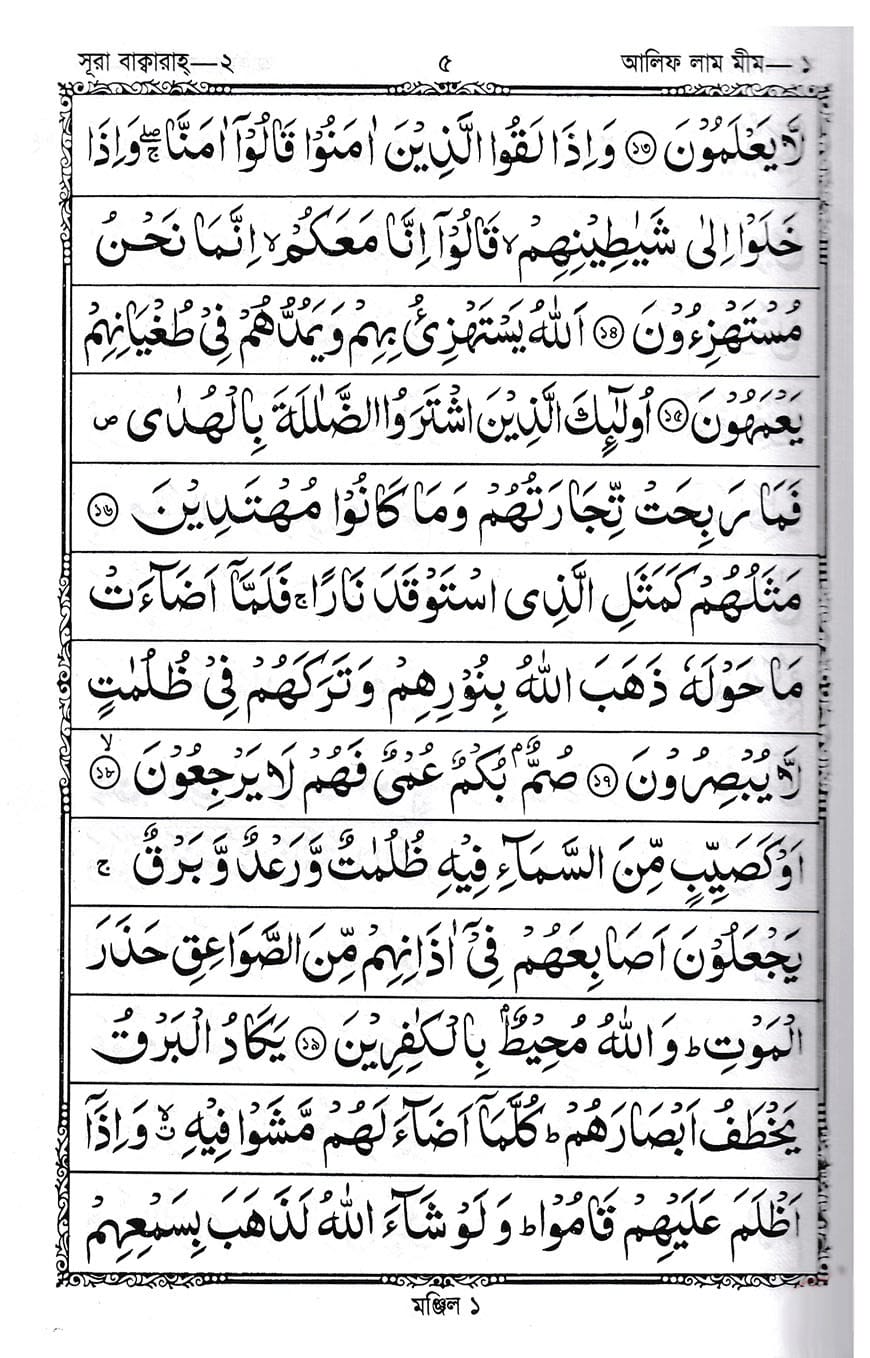 সূরা বাক্বারাহ্—২ ৫ আলিফ লাম মীম—১
لَّا يَعْلَمُوْنَ ۝١٣ وَاِذَا لَقُوا الَّذِيْنَ اٰمَنُوْا قَالُوْٓا اٰمَنَّا ۚۖ وَاِذَا
خَلَوْا اِلٰى شَيٰطِيْنِهِمْ ۙ قَالُوْٓا اِنَّا مَعَكُمْ ۙ اِنَّمَا نَحْنُ
مُسْتَهْزِءُوْنَ ۝১৪ اَللّٰهُ يَسْتَهْزِئُ بِهِمْ وَيَمُدُّهُمْ فِيْ طُغْيَانِهِمْ
يَعْمَهُوْنَ ۝১৫ اُولٰٓئِكَ الَّذِيْنَ اشْتَرَوُا الضَّلٰلَةَ بِالْهُدٰى ص
فَمَا رَبِحَتْ تِّجَارَتُهُمْ وَمَا كَانُوْا مُهْتَدِيْنَ ۝১৬
مَثَلُهُمْ كَمَثَلِ الَّذِى اسْتَوْقَدَ نَارًا ۚ فَلَمَّآ اَضَآءَتْ
مَا حَوْلَهٗ ذَهَبَ اللّٰهُ بِنُوْرِهِمْ وَتَرَكَهُمْ فِيْ ظُلُمٰتٍ
لَّا يُبْصِرُوْنَ ۝১৭ صُمٌّۢ بُكْمٌ عُمْيٌ فَهُمْ لَا يَرْجِعُوْنَ ۙ۝১৮
اَوْ كَصَيِّبٍ مِّنَ السَّمَآءِ فِيْهِ ظُلُمٰتٌ وَّرَعْدٌ وَّبَرْقٌ ۚ
يَجْعَلُوْنَ اَصَابِعَهُمْ فِيْٓ اٰذَانِهِمْ مِّنَ الصَّوَاعِقِ حَذَرَ
الْمَوْتِ ؕ وَاللّٰهُ مُحِيْطٌۢ بِالْكٰفِرِيْنَ ۝১৯ يَكَادُ الْبَرْقُ
يَخْطَفُ اَبْصَارَهُمْ ؕ كُلَّمَآ اَضَآءَ لَهُمْ مَّشَوْا فِيْهِ ۙ وَاِذَآ
اَظْلَمَ عَلَيْهِمْ قَامُوْا ؕ وَلَوْ شَآءَ اللّٰهُ لَذَهَبَ بِسَمْعِهِمْ
মঞ্জিল ১